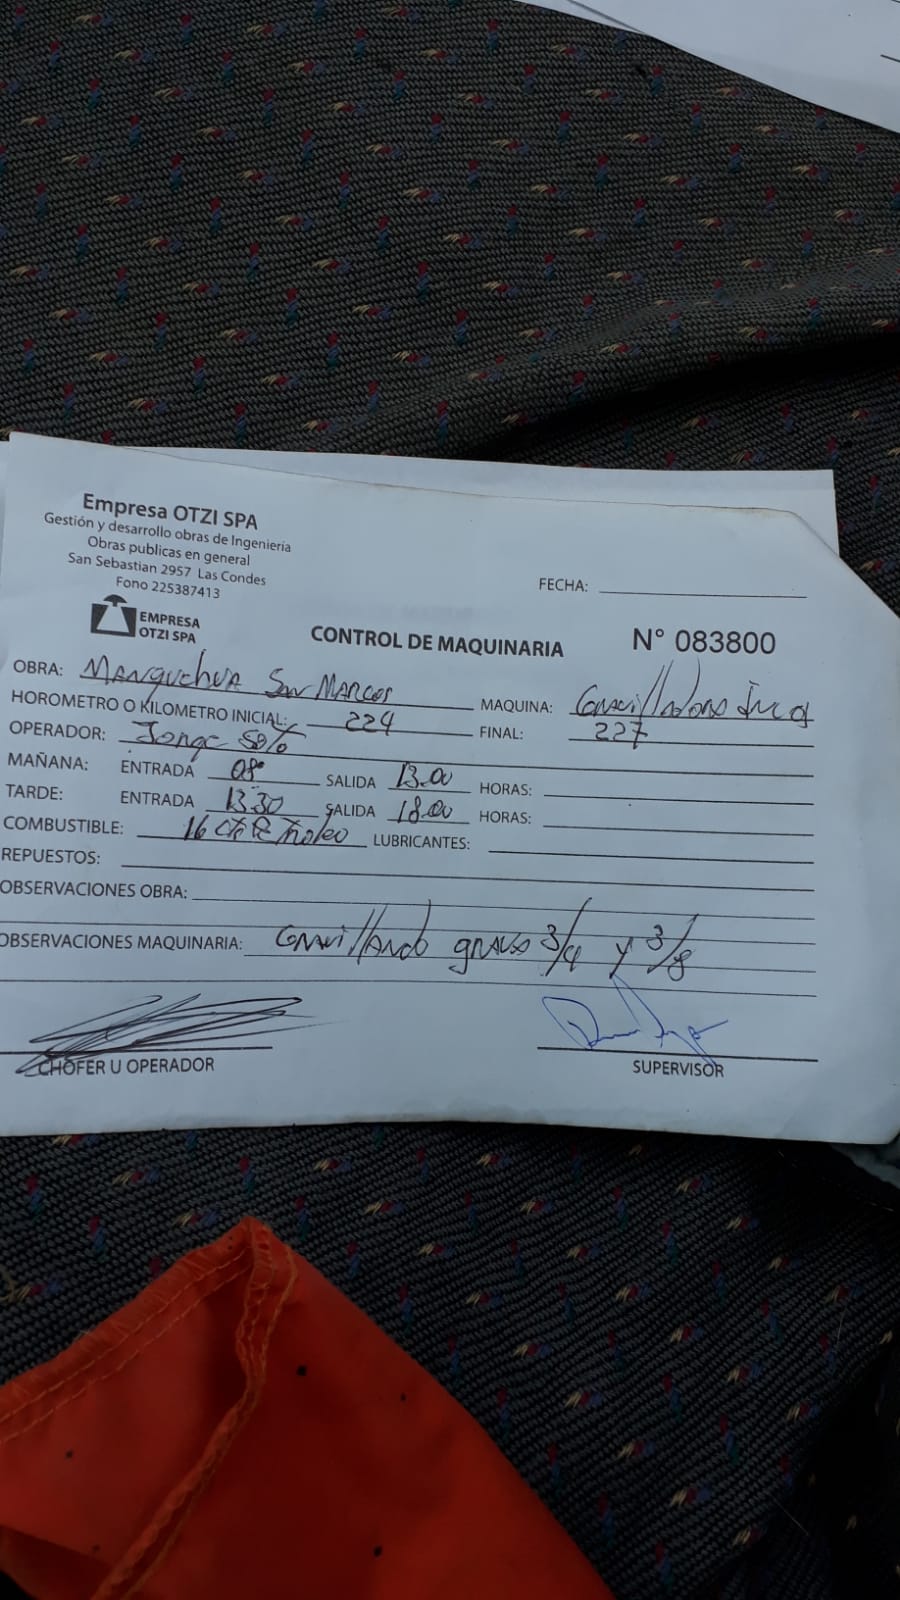 Empresa OTZI SPA
Gestión y desarrollo obras de Ingenieria
Obras publicas en general
San Sebastian 2957 Las Condes
Fono 225387413
EMPRESA
OTZI SPA
FECHA:
CONTROL DE MAQUINARIA N° 083800
OBRA: San Marcos MAQUINA:
HOROMETRO O KILOMETRO INICIAL: 224 FINAL: 227
OPERADOR: Jorge
MAÑANA: ENTRADA 08° SALIDA 13.00 HORAS:
TARDE: ENTRADA 13.30 SALIDA 18.00 HORAS:
COMBUSTIBLE: 16 LUBRICANTES:
REPUESTOS:
OBSERVACIONES OBRA:
OBSERVACIONES MAQUINARIA: 3/4 y 3/8
CHOFER U OPERADOR SUPERVISOR